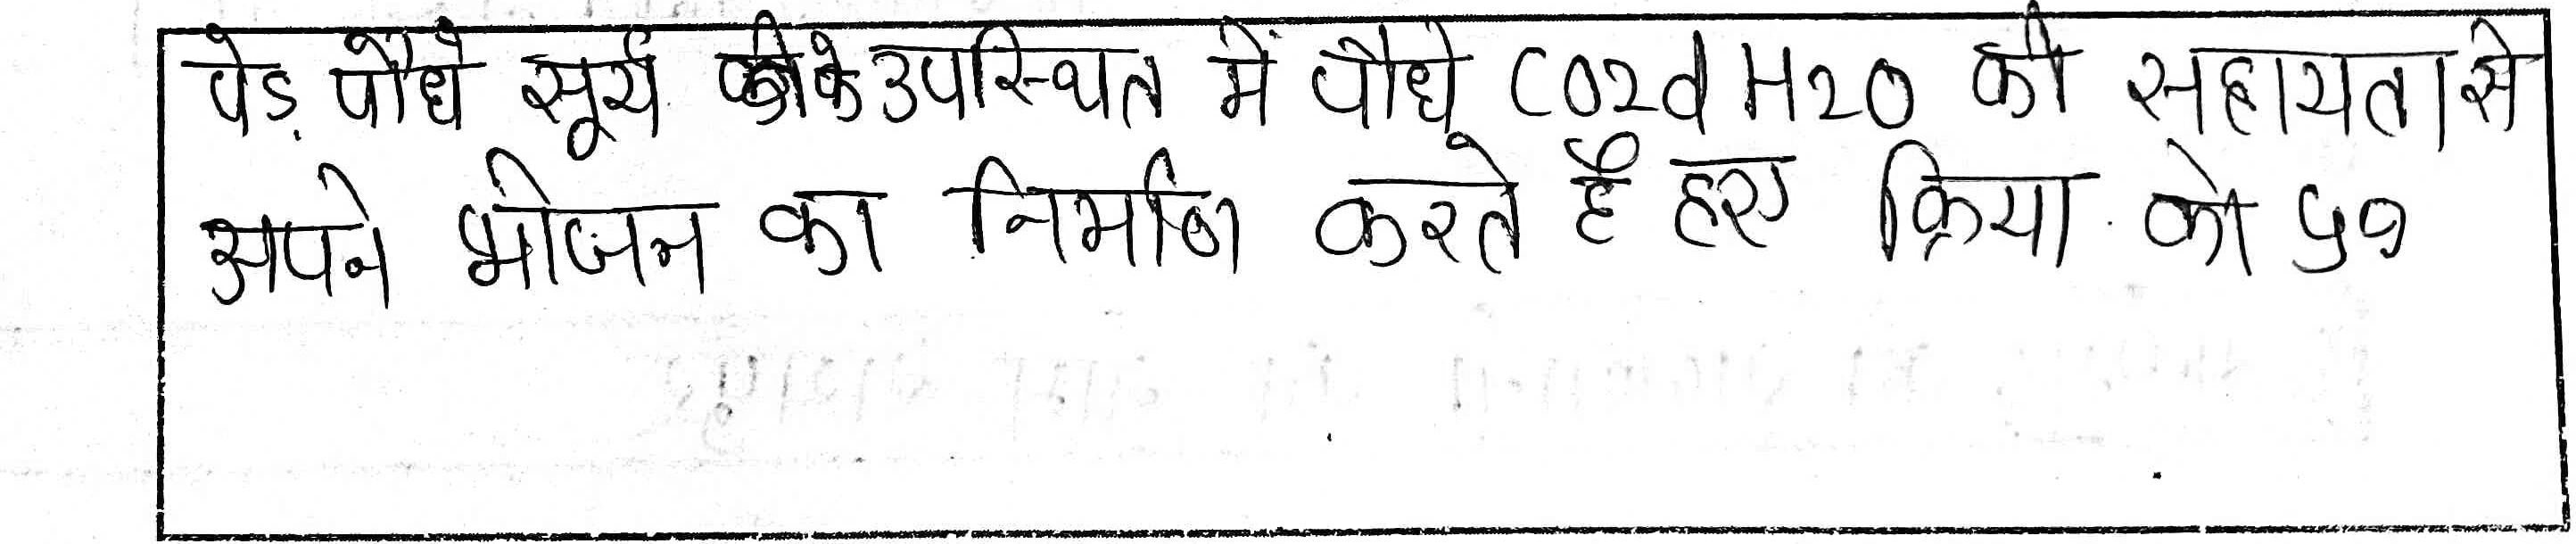 पेड़ पौधे सूर्य के उपस्थित में पौधे CO2 व H2O की सहायता से
अपने भोजन का निर्माण करते है इस क्रिया को